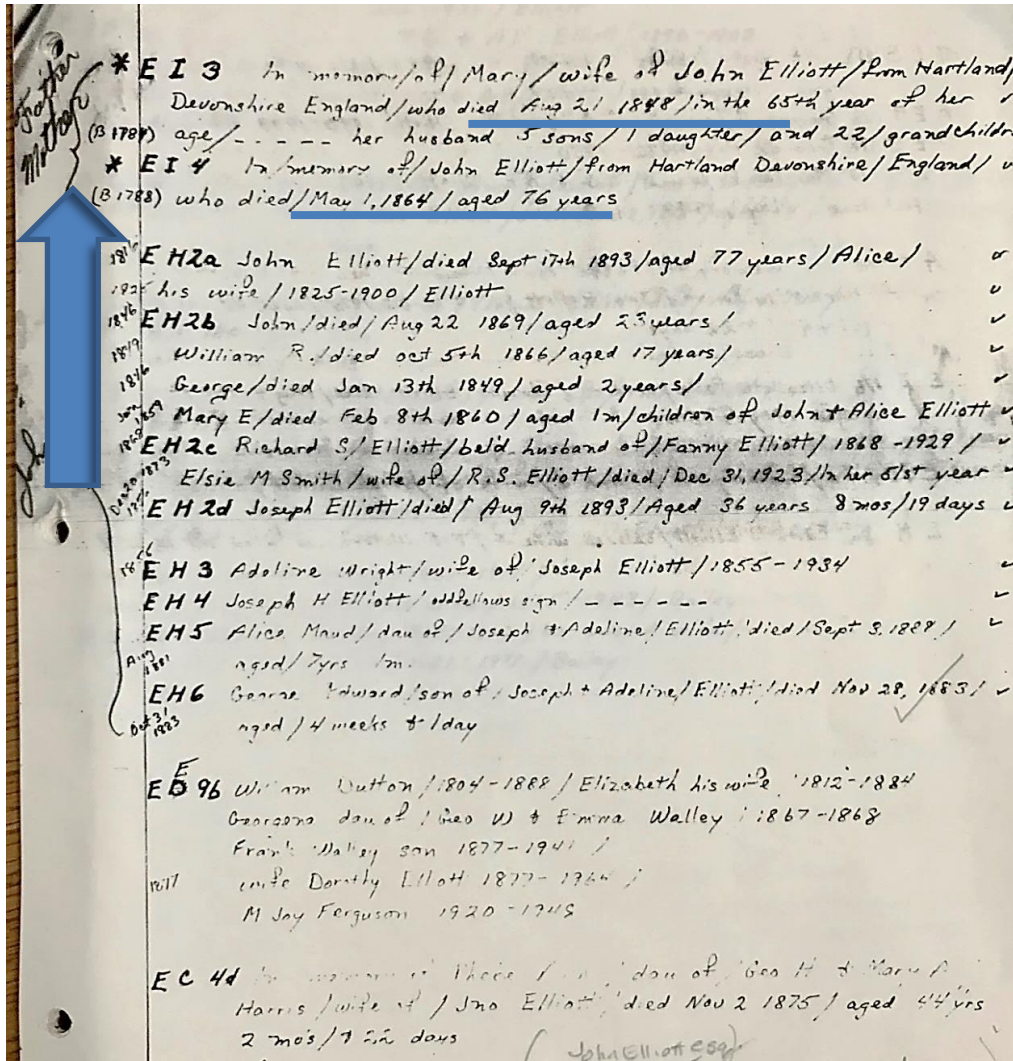 Father
Mother
* E I 3 In memory/of/Mary/wife of John Elliott/from Hartland/
Devonshire England/who died Aug 21, 1848/in the 65th year of her ✓
(B 1784) age/----- her husband 5 sons/1 daughter/and 22/grandchildr
* E I 4 In/memory of/John Elliott/from Hartland Devonshire/England/ ✓
(B 1788) who died/May 1, 1864/aged 76 years
1816 E H2a John Elliott/died Sept 17th 1893/aged 77 years/Alice/
1825 his wife/1825-1900/Elliott ✓
1846 E H2b John/died/Aug 22 1869/aged 23 years/ ✓
1849 William R./died oct 5th 1866/aged 17 years/ ✓
1846 George/died Jan 13th 1849/aged 2 years/ ✓
Jan 1859 Mary E/died Feb 8th 1860/aged 1m/children of John + Alice Elliott ✓
1868 E H2c Richard S/Elliott/bel'd husband of/Fanny Elliott/1868-1929/ ✓
1873 Elsie M Smith/wife of/R.S. Elliott/died/Dec 31, 1923/In her 51st year ✓
E H 2d Joseph Elliott/died/Aug 9th 1893/Aged 36 years 8 mos/19 days ✓
1856 E H 3 Adeline Wright/wife of/Joseph Elliott/1855-1934 ✓
E H 4 Joseph H Elliott/oddfellows sign/------ ✓
E H 5 Alice Maud/dau of/Joseph + Adeline/Elliott/died/Sept 3, 1888/ ✓
Aug 1881 aged/7yrs 1m.
E H 6 George Edward/son of/Joseph + Adeline/Elliott/died Nov 28, 1883/ ✓
Oct 31 1883 aged/4 weeks + 1day
E 9b Dutton/1804-1888/Elizabeth his wife/1812-1884
dau of/Geo W + Emma Walley/1867-1868
Frank Walley son 1877-1941/
1877 wife Dorothy Elliott 1877-1964/
M Joy Ferguson 1920-1948
E C 4d In memory of dau of/Geo H + Mary A
Harris/wife of/Jno Elliott/died Nov 2 1875/aged 44 yrs
2 mo's/+ 22 days
(John Elliott Esq)